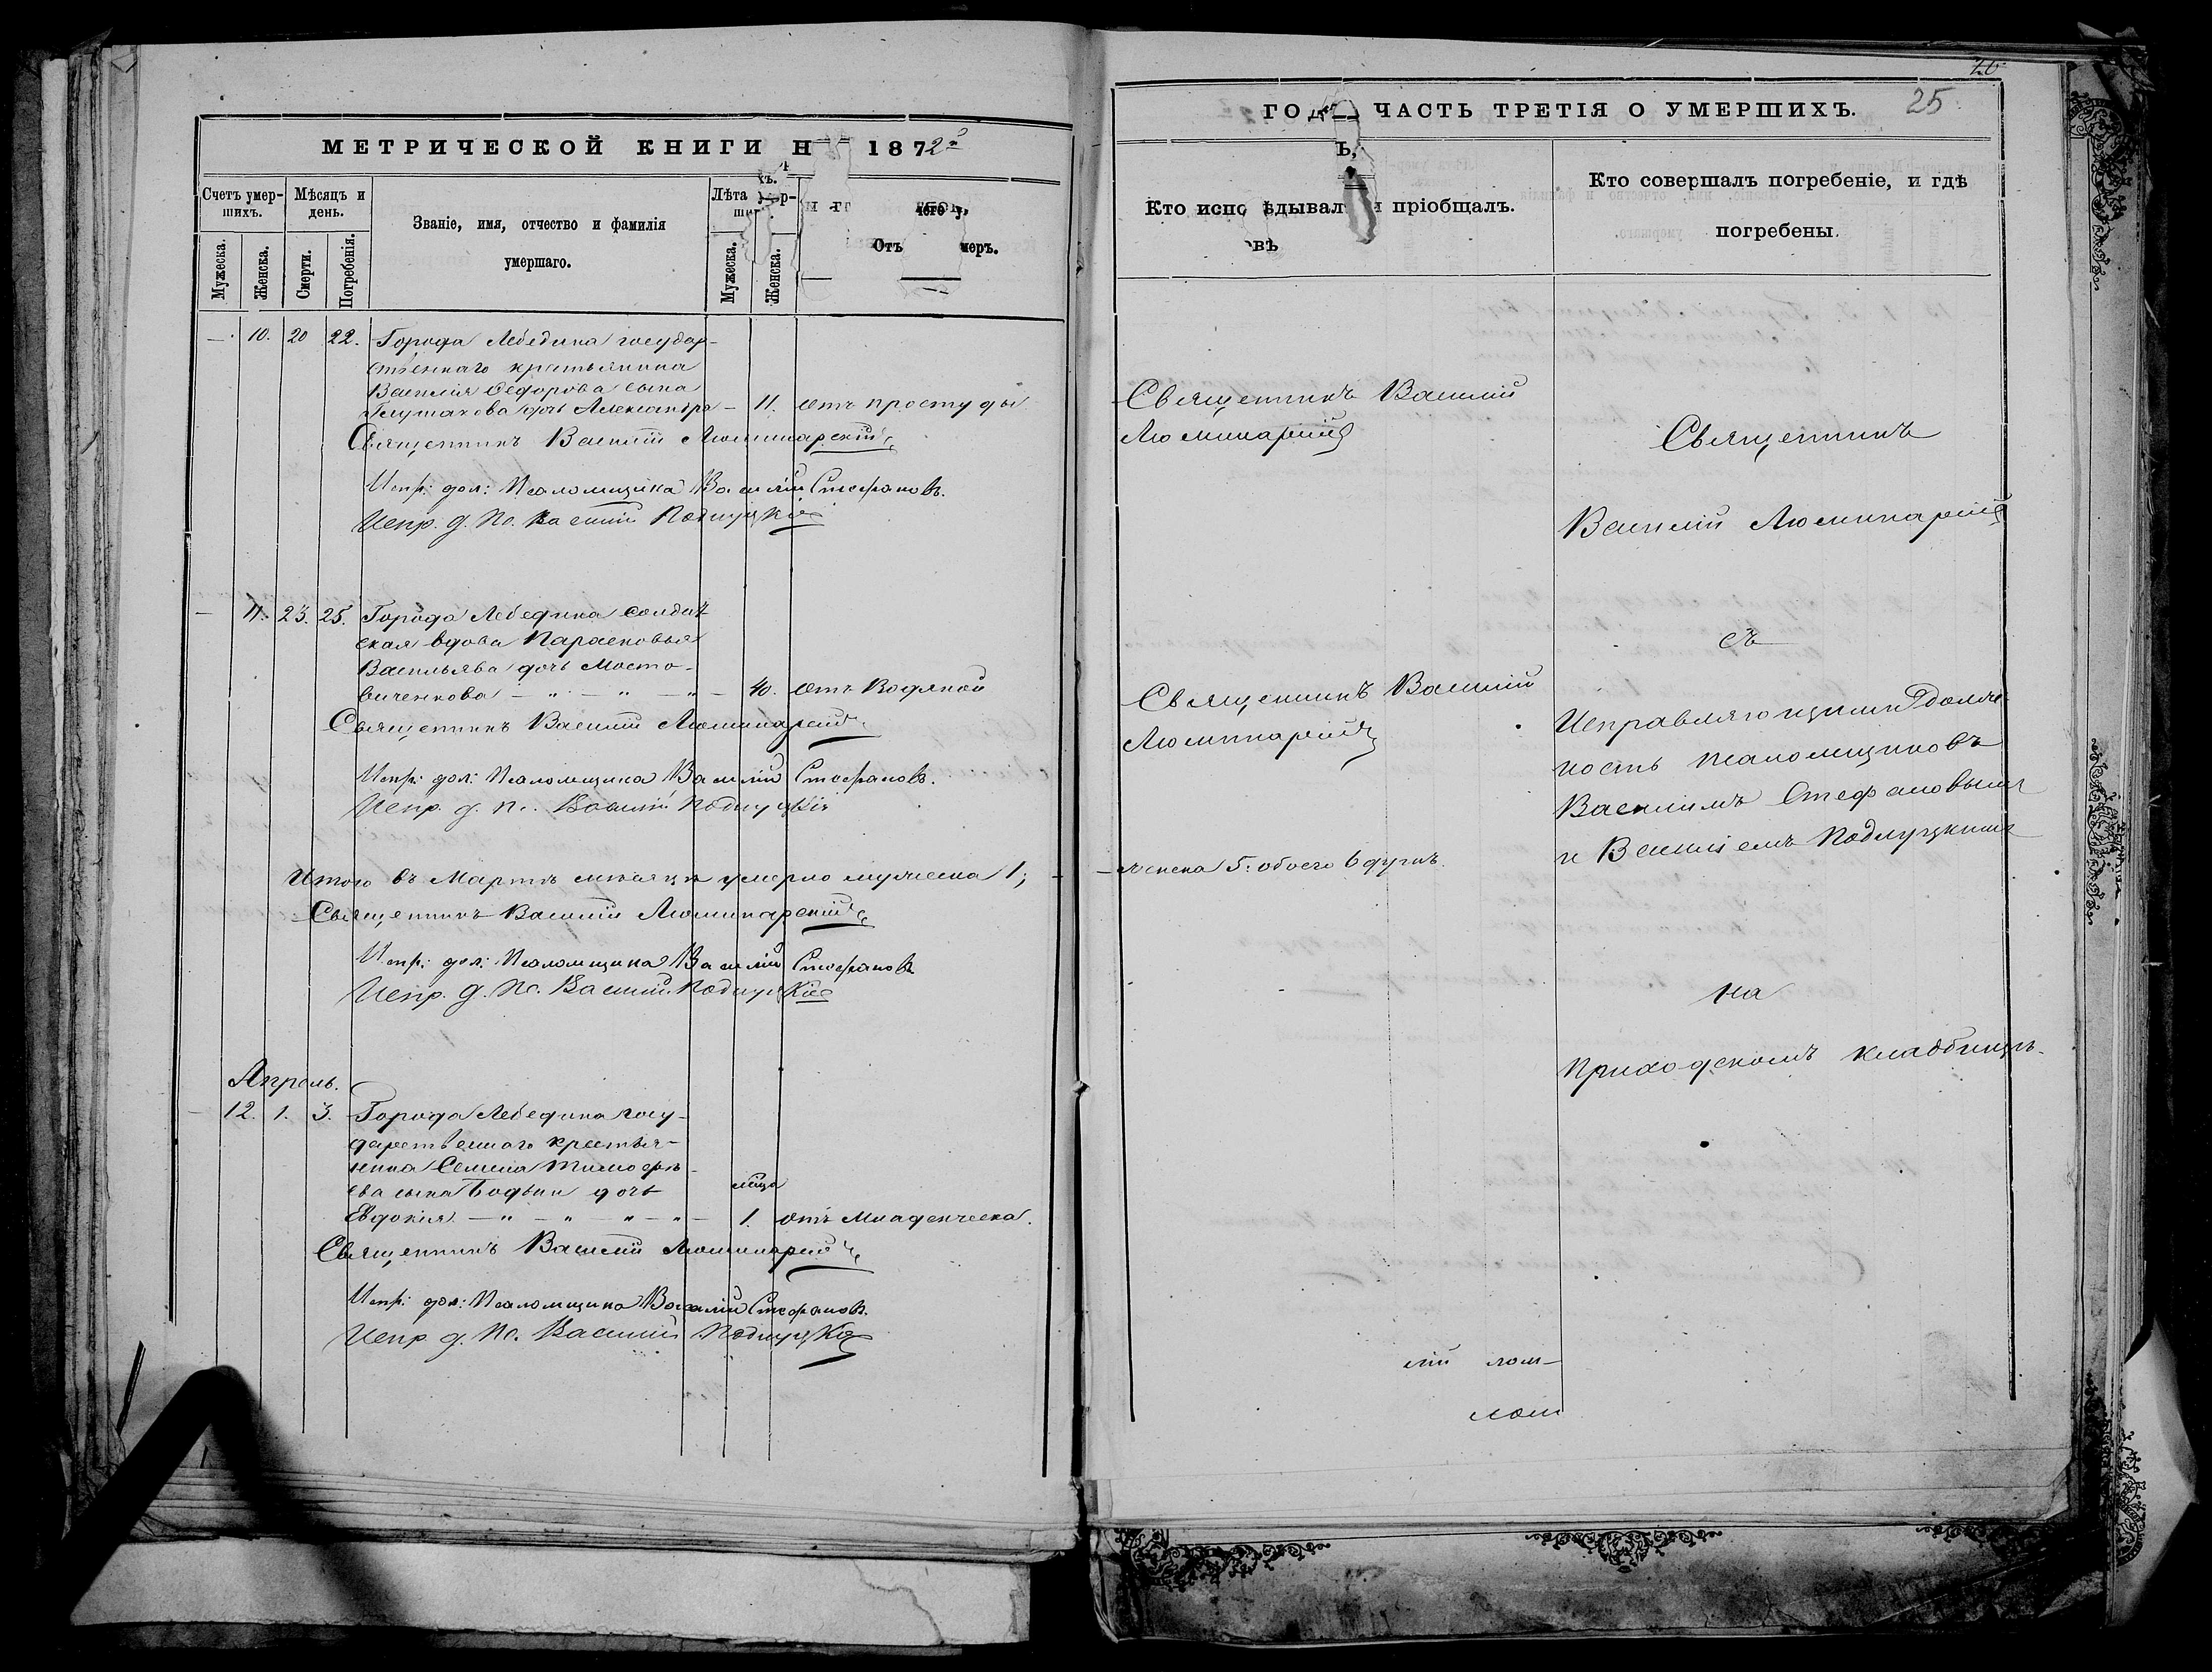 МЕТРИЧЕСКОЙ КНИГИ Н 1872
Счетъ умер-
шихъ.
Мѣсяцъ и
день.
Званіе, имя, отчество и фамилія
умершаго.
Лѣта
Отъ чего у
меръ.
Мужеска.
Женска.
Смерти.
Погребенія.
Мужеска.
Женска.
10. 20 22. Города Лебедина государ-
ственнаго крестьянина
Василія Федорова сына
дочь Александра – 11. отъ простуды
Священникъ Василій Люминарскій
Испр: дол: Псаломщика Василій Стефановъ.
Испр. д. Пс. Василій Подлуцкій
— 11. 23. 25. Города Лебедина солдат
ская вдова Парасковья
Васильева дочь Мосто-
виченкова — " — " — " — 40. отъ Водяной
Священникъ Василій Люминарскій
Испр: дол: Псаломщика Василій Стефановъ.
Испр. д. Пс. Василій Подлуцкій
Итого въ Мартѣ мѣсяцѣ умерло мужеска 1;
Священникъ Василій Люминарскій
Испр: дол: Псаломщика Василій Стефановъ
Испр. д. Пс. Василій Подлуцкій
Апрель.
— 12. 1. 3. Города Лебедина госу-
дарственнаго крестья-
нина Семена Тимофѣ-
ева сына Бодни дочь
мѣсяца
Евдокія. — " — " — " — " — 1. отъ Младенческа.
Священникъ Василій Люминарскій
Испр: дол: Псаломщика Василій Стефановъ.
Испр. д. Пс. Василій Подлуцкій
26
ГО ЧАСТЬ ТРЕТІЯ О УМЕРШИХЪ. 25
Кто испо ѣдывал и пріобщалъ.
Кто совершалъ погребеніе, и гдѣ
погребены.
Священникъ Василій
Люминарскій
Священникъ
Василій Люминарскій
съ
Священникъ Василій
Люминарскій
Исправляющими долж-
ность псаломщиковъ
Василимъ Стефановымъ
и Василіемъ Подлуцкимъ
— женска 5. обоего 6 душъ.
на
Приходскомъ кладбищѣ.
лій лом—
лом